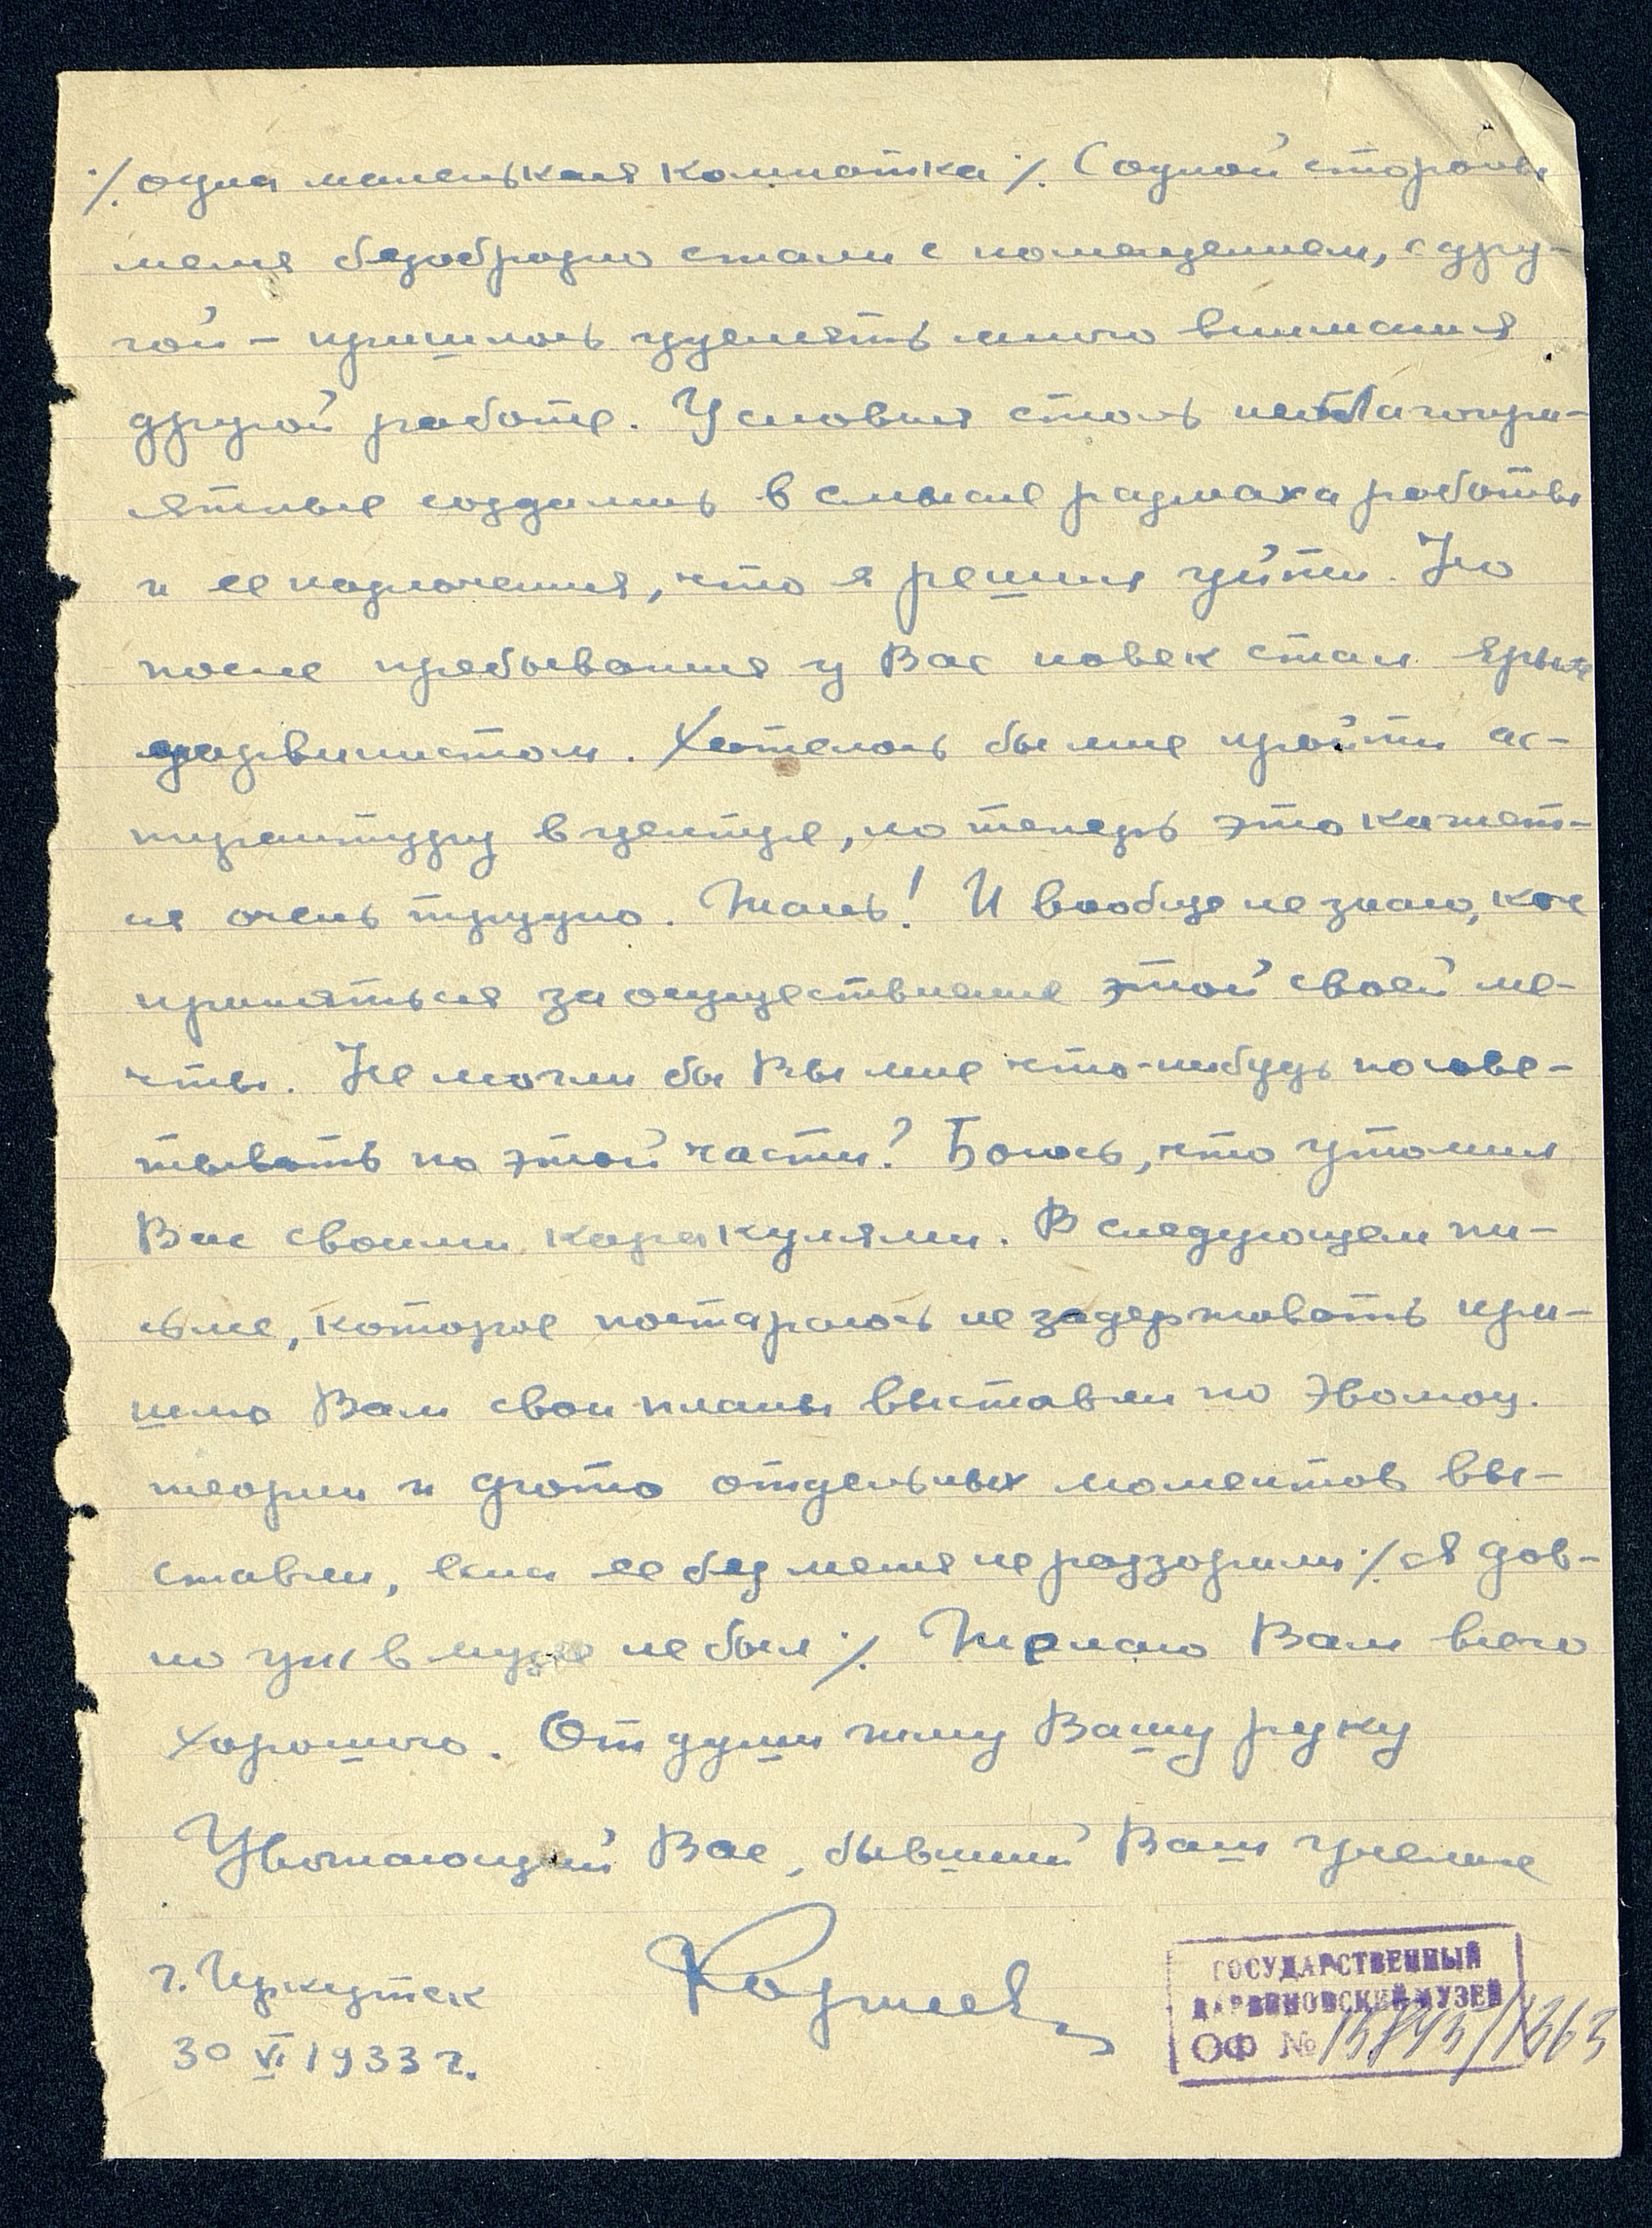 ⁒ одна маленькая комнатка ⁒. С одной стороны
меня безобразно стали с помещением, с дру-
гой – пришлось уделять много внимания
другой работе. Условия столь неблагопри-
ятные создались в смысле размаха работы
и ее назначения, что я решил уйти. Но
после пребывания у Вас навек стал ярым
дарвинистом. Хотелось бы мне пройти ас-
пирантуру в центре, но теперь это кажет-
ся очень трудно. Жаль! И вообще не знаю, как
приняться за осуществление этой своей ме-
чты. Не могли бы Вы мне что-нибудь посове-
товать по этой части? Боюсь, что утомил
Вас своими каракулями. В следующем пи-
сьме, которое постараюсь не задерживать при-
шлю Вам свои планы выставки по эволюц.
теории и фото отдельных моментов вы-
ставки, если ее без меня не раззорили ⁒ Я дав-
но уж в музее не был ⁒. Желаю Вам всего
хорошего. От души жму Вашу руку
Уважающий Вас, бывший Ваш ученик
г. Иркутск
30 VI 1933 г.
ГОСУДАРСТВЕННЫЙ
ДАРВИНОВСКИЙ МУЗЕЙ
ОФ №